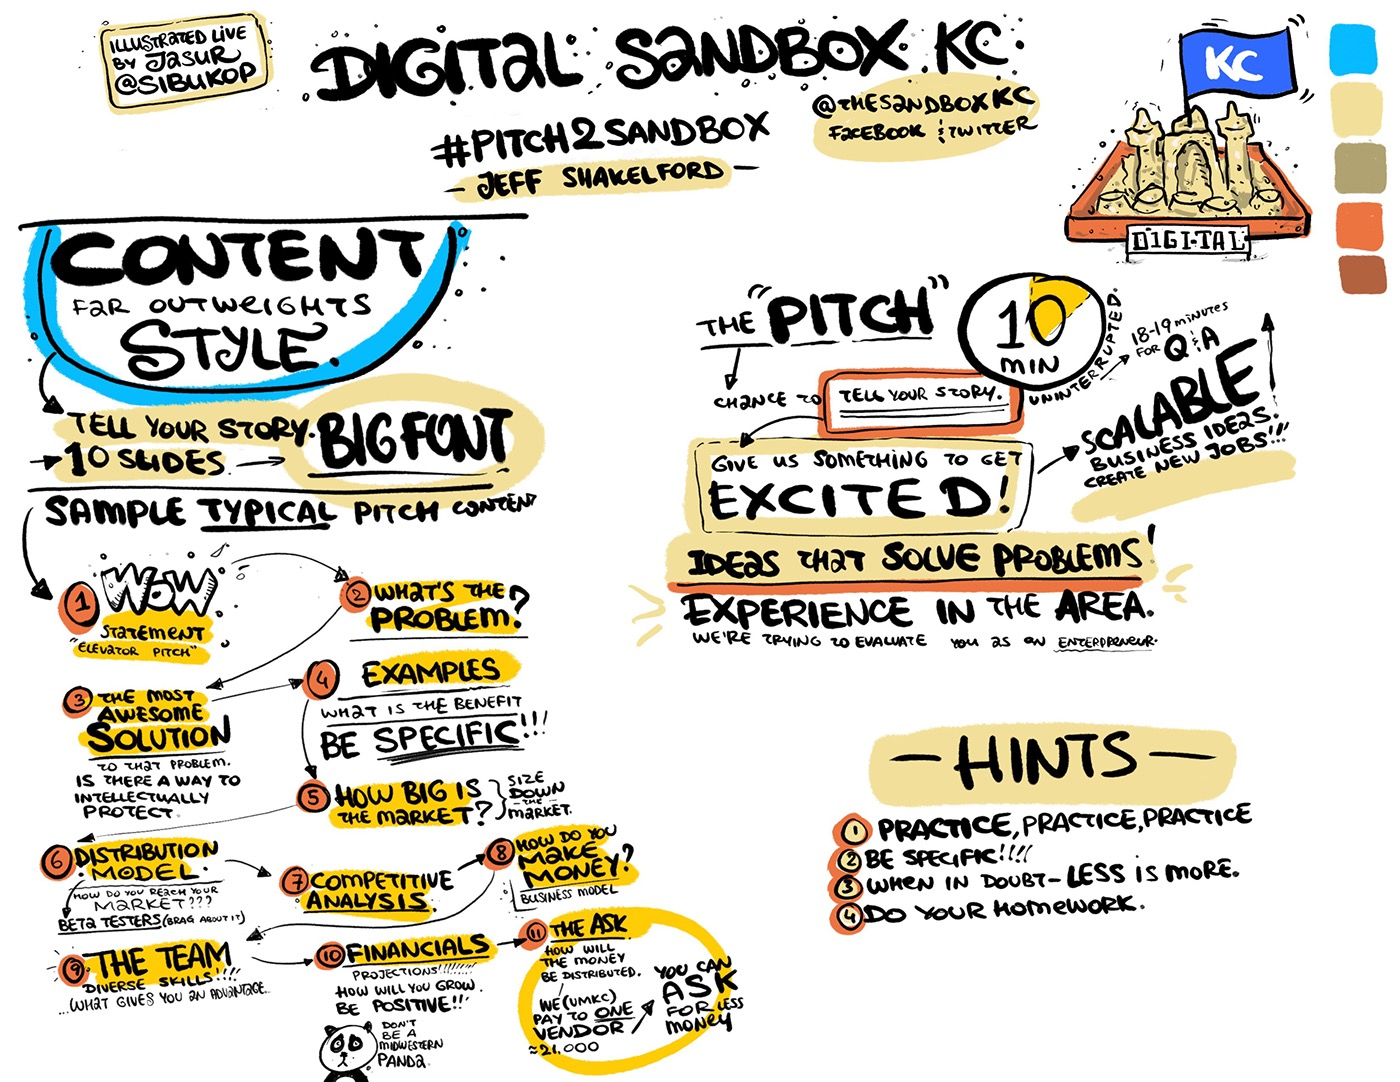 ILLUSTRATED LIVE
BY JASUR
@SIBUKOP
DIGITAL SANDBOX KC
#PITCH2SANDBOX
- JEFF SHAKELFORD -
@THESANDBOXKC
FACEBOOK & TWITTER
KC
DIGITAL
CONTENT
FAR OUTWEIGHTS
STYLE.
TELL YOUR STORY.
10 SLIDES
BIG FONT
SAMPLE TYPICAL PITCH CONTENT
1 WOW
STATEMENT
"ELEVATOR PITCH"
2 WHAT'S THE
PROBLEM?
3 THE MOST
AWESOME
SOLUTION
TO THAT PROBLEM.
IS THERE A WAY TO
INTELLECTUALLY
PROTECT.
4 EXAMPLES
WHAT IS THE BENEFIT
BE SPECIFIC!!!
5 HOW BIG IS
THE MARKET?
SIZE
DOWN
THE
MARKET.
6 DISTRIBUTION
MODEL.
HOW DO YOU REACH YOUR
MARKET???
BETA TESTERS (BRAG ABOUT IT)
7 COMPETITIVE
ANALYSIS.
8 HOW DO YOU
MAKE
MONEY?
BUSINESS MODEL
9 THE TEAM
DIVERSE SKILLS!!!!
...WHAT GIVES YOU AN ADVANTAGE...
10 FINANCIALS
PROJECTIONS!!!!!!!!
HOW WILL YOU GROW.
BE POSITIVE!!
DON'T
BE A
MIDWESTERN
PANDA.
11 THE ASK
HOW WILL
THE MONEY
BE DISTRIBUTED.
WE (UMKC)
PAY TO ONE
VENDOR
≈21.000
YOU CAN
ASK
FOR LESS
MONEY
THE "PITCH"
10
MIN
UNINTERRUPTED.
18-19 MINUTES
FOR Q&A
CHANCE TO
TELL YOUR STORY.
GIVE US SOMETHING TO GET
EXCITED!
SCALABLE
BUSINESS IDEAS.
CREATE NEW JOBS!!!
IDEAS THAT SOLVE PROBLEMS!
EXPERIENCE IN THE AREA.
WE'RE TRYING TO EVALUATE YOU AS AN ENTERPRENEUR.
- HINTS -
1 PRACTICE, PRACTICE, PRACTICE
2 BE SPECIFIC!!!!
3 WHEN IN DOUBT - LESS IS MORE.
4 DO YOUR HOMEWORK.